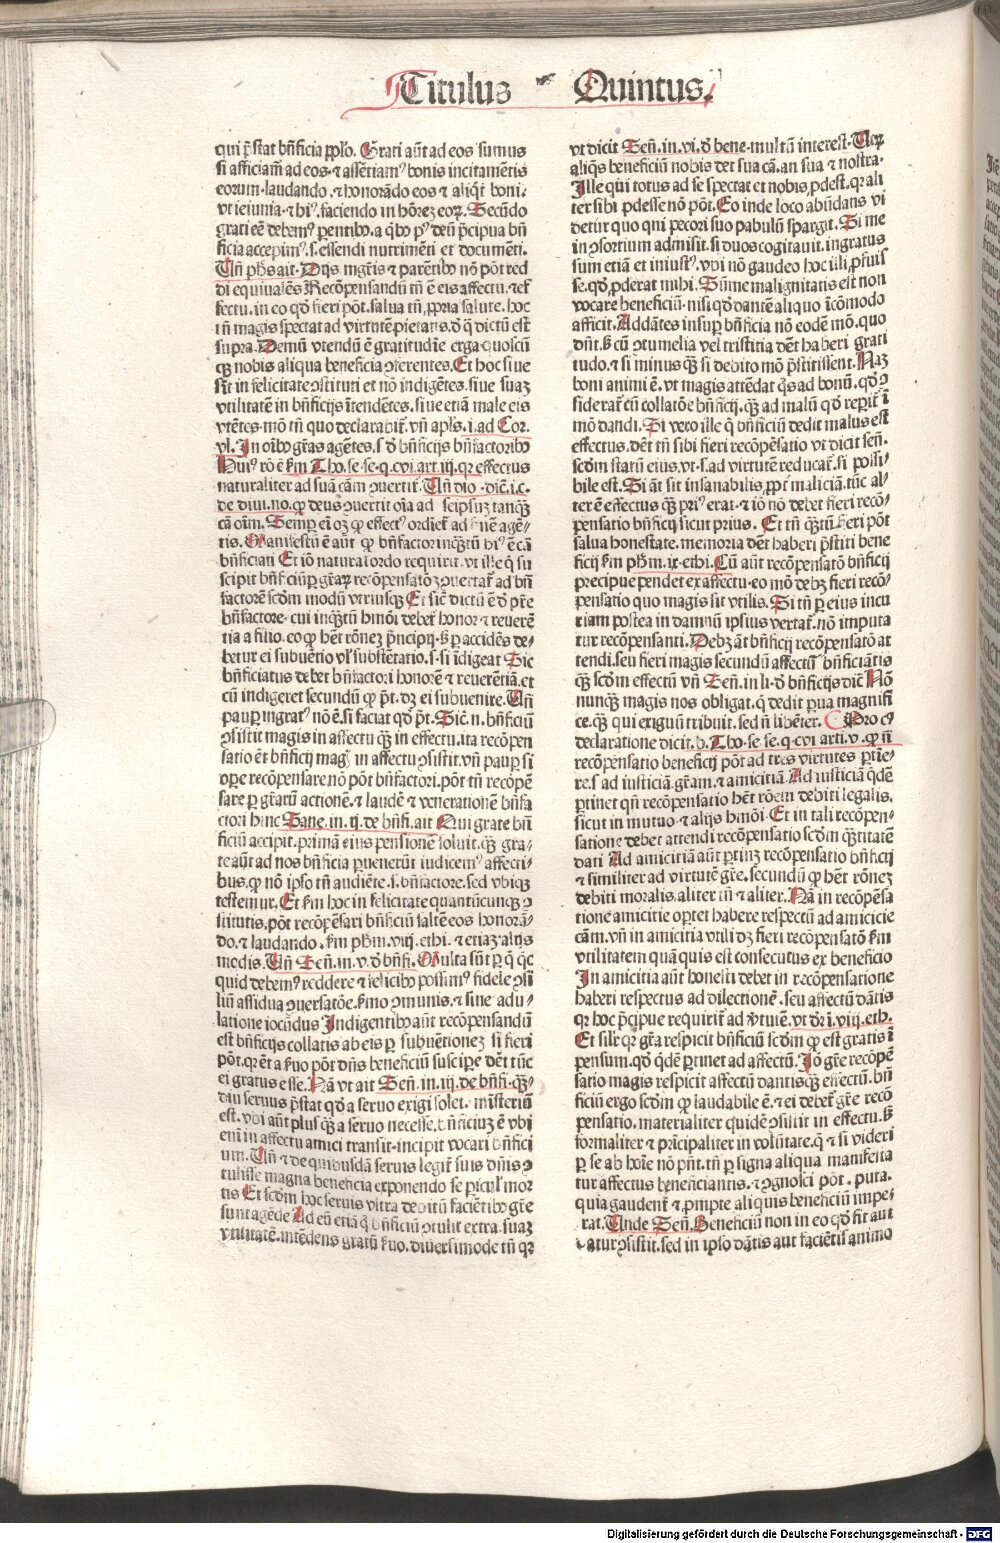 Titulus Quintus.
qui p̄stat bn̄ficia pp̄lo. Grati aūt ad eos sumus
si afficiam̄ ad eos ⁊ assētiamꝰ bonis incitamētis
eorum laudando ⁊ honorādo eos ⁊ aliqͥt boni
vt ieiunia ⁊ hiꝰ faciendo in hōrez eoꝝ. Secūdo
grati eē debemꝰ parentibꝰ a qͥbꝰ pꝰ deū p̄cipua bn̄
ficia accepimꝰ .s. essendi nutrimēti et documēti.
Un̄ ph̄s ait. Dijs mgr̄is ⁊ parētibꝰ nō pōt red
di equiualēs Recōpensandū tn̄ ē eis affectu ⁊ ef
fectu in eo qd̓ fieri pōt salua tn̄ ꝓpria salute. hoc
tn̄ magis spectat ad virtutē pietatis d̓ q̄ dictū est
supra. Demū vtendū ē gratitudīe erga quoscū
cꝙ nobis aliqua beneficia ꝯferentes. Et hoc siue
sīt in felicitate ꝯstituti et nō indigētes siue suaz
vtilitatē in bn̄ficijs ītendētes. siue etiā male eis
vtētes mō tn̄ quo declarabit̄. vn̄ apl̄s .i. ad Cor.
vl. In oībꝰ grās agētes .s. d̓ bn̄ficijs bn̄factoribꝰ
Huiꝰ rō ē km̄ Tho. se. se. q. cvi. art. iij. qr effectus
naturaliter ad suā cām ꝯuertit̄. Un̄ dio. dic̄ .i. c.
de diui. no. ꝙ deus ꝯuertit oīa ad seipsuz tanqꝫ
cā oīm. Semꝑ eī oꝫ ꝙ effectꝰ ordiet̄ ad finē agē
tis. Manifestū ē aūt ꝙ bn̄factor inqꝫtū hiꝰ ē cā
bn̄ficiati Et iō naturalordo requirit vt ille qͥ su
scipit bn̄ficiū ꝑ grāꝝ recōpensatōꝫ ꝯuertat̄ ad bn̄
factorē scdm modū vtriusqꝫ Et sic̄ dictū ē d̓ pr̄e
bn̄factore. cui inqꝫtū hmōi debet̄ honor ⁊ reuerē
tia a filio. eo ꝙ het rōnez pn̄cipij. s̄ ꝑ accidēs de
betur ei subuētio vl̓ substētatio. s. si īdigeat Sic
bn̄ficiatus debet bn̄factori honorē ⁊ reuerētiā. et
cū indigeret secundū ꝙ pōt. dꝫ ei subuenire. Un̄
pauꝑ ingratꝰ nō ē. si faciat qd̓ pōt. Sic̄ .n. bn̄ficiū
ꝯsistit magis in affectu qꝫ in effectu. ita recōpen
satio ē bn̄ficij magꝭ in affectu ꝯsistit. vn̄ pauꝑ si
oꝑe recōpensare nō pōt bn̄factori. pōt tn̄ recōpē
sare ꝑ gr̄arū actionē ⁊ laudē ⁊ venerationē bn̄fa
ctori hinc Sane. in. ij. de bn̄fi. ait Qui grate bn̄
ficiū accipit. primā eius pensionē soluit. qꝫ gra
te aūt ad nos bn̄ficia ꝑuenerūt iudicemꝰ affecti
bus. ꝙ nō ipso tn̄ audiēte .s. bn̄factore. sed vbiqꝫ
testemur. Et km̄ hoc in felicitate quantūcunqꝫ ꝯ
stitutis. pōt recōpēsari bn̄ficiū saltē eos honorā
do. ⁊ laudando. km̄ ph̄m. viij. ethi. ⁊ etiaz alijs
modis. Un̄ Sen̄. in. v. d̓ bn̄fi. Multa sūt ꝑ q̄ qͥc
quid debemꝰ reddere ⁊ felicibꝰ possimꝰ fidele ꝯsi
liū assidua ꝯuersatōe. s̄mo ꝯmunis. ⁊ sine adu
latione iocūdus Indigentibꝰ aūt recōpensandū
est bn̄ficijs collatis ab eis ꝑ subuētionez si fieri
pōt. qr ēt a s̄uo pōt dn̄s beneficiū suscipe dēt tūc
ei gratus esse. Nā vt ait Sen̄. in. iij. de bn̄fi. qꝫ
diu seruus p̄stat qd̓ a seruo exigi solet. misteriū
est. vbi aūt plus qꝫ a seruo necesse. bn̄ficiuz ē vbi
enī in affectu amici transit. incipit vocari bn̄fici
um. Un̄ ⁊ de quibusdā seruis legit̄ suis dn̄is ꝯ
tulisse magna beneficia exponendo se piculꝰ mor
tis Et scdm hoc seruis vltra debitū faciētibꝰ grē
sunt agēde Ad eū etiā qͥ bn̄ficiū ꝯtulit extra suaz
vtilitatē. intēdens gratū s̄uo. diuersimode tn̄ qr
vt dicit Sen̄. in. vi. d̓ bene. multū interest. Utꝝ
aliqͥs beneficiū nobis det sua cā. an sua ⁊ nostra.
Ille qui totus ad se spectat et nobis ꝓdest. qr ali
ter sibi ꝓdesse nō pōt. Eo inde loco abūdans vi
detur quo qui pecori suo pabulū spargit. Si me
in ꝯsortium admisit. si duos cogitauit. ingratus
sum etiā et iniustꝰ. vbi nō gaudeo hoc illi ꝓfuis
se. qd̓ ꝓderat mihi. Sūme malignitatis est non
vocare beneficiū. nisi qd̓ dantē aliquo īcōmodo
afficit. Addātes insuꝑ bn̄ficia nō eodē mō. quo
dn̄t. s̄ cū ꝯtumelia vel tristitia dēt haberi grati
tudo. ⁊ si minus qꝫ si debito mō p̄stitissent. Naꝫ
boni animi ē. vt magis attēdat qͥs ad bonū. qd̓ ꝯ
siderat̄ cū collatōe bn̄ficij. qꝫ ad malū qd̓ reꝑit̄ ī
mō dandi. Si vero ille qͥ bn̄ficiū dedit malus est
effectus. dēt tn̄ sibi fieri recōpēsatio vt dicit sen̄.
scdm statū eius. vt .s. ad virtutē reducat̄. si possi
bile est. Si āt sit insanabilis. ꝓpt̄ maliciā. tūc al
ter ē effectus qꝫ priꝰ erat. ⁊ iō nō debet fieri recō
pensatio bn̄ficij sicut prius. Et tn̄ qꝫtū fieri pōt
salua honestate. memoria dēt haberi p̄stiti bene
ficij km̄ ph̄m. ix. ethi. Cū aūt recōpensatō bn̄ficij
precipue pendet ex affectu. eo mō debꝫ fieri recō
pensatio quo magis sit vtilis. Si tn̄ ꝑ eius incu
riam postea in damnū ipsius vertat̄. nō imputa
tur recōpensanti. Debꝫ āt bn̄ficij recōpensatō at
tendi. seu fieri magis secundū affectū bn̄ficiātis
qꝫ scdm effectū vn̄ Sen̄. in li. d̓ bn̄ficijs dic̄ Nō
nunqꝫ magis nos obligat. qͥ dedit ꝑua magnifi
ce. qꝫ qui exiguū tribuit. sed n̄ libēter. Pro cꝰ
declaratione dicit. b. Tho. se. se. q. cvi. arti. v. ꝙ n̄
recōpensatio beneficij pōt ad tres virtutes ꝑtie
re. s. ad iusticiā. grām. ⁊ amicitiā. Ad iusticiā qͥdē
ꝑtinet qn̄ recōpensatio het rōem debiti legalis.
sicut in mutuo ⁊ alijs hmōi. Et in tali recōpen
satione debet attendi recōpensatio scdm qꝫtitatē
dati Ad amicitiā aūt ꝑtinꝫ recōpensatio bn̄ficij
⁊ similiter ad virtutē grē. secundū ꝙ het rōnez
debiti moralis. aliter tn̄ ⁊ aliter. Nā in recōpēsa
tione amicitie optet habere respectū ad amicicie
cām. vn̄ in amicitia vtili dꝫ fieri recōpensatō km̄
vtilitatem quā quis est consecutus ex beneficio
In amicitia aūt honesti debet in recōpensatione
haberi respectus ad dilectionē. seu affectū dātis
qr hoc p̄cipue requirit̄ ad v̓tutē. vt dr̄ ī. viij. eth.
Et silr̄ qr gr̄a respicit bn̄ficiū scdm ꝙ est gratis ī
pensum. qd̓ qͥdē ꝑtinet ad affectū. Iō grē recōpē
satio magis respicit affectū dantis qꝫ effectū. bn̄
ficiū ergo scdm ꝙ laudabile ē. ⁊ ei debet̄ grē recō
pensatio. materialiter quidē ꝯsistit in effectu. s̄
formaliter ⁊ prīcipaliter in volūtate. q̄ ⁊ si videri
ꝑ se ab hoīe nō pn̄t. tn̄ ꝑ signa aliqua manifesta
tur affectus beneficiantis. ⁊ ꝯgnosci pōt. puta.
quia gaudent̄ ⁊ ꝓmpte aliquis beneficiū impe
rat. Unde Sen̄. Beneficiū non in eo qd̓ fit aut
datur ꝯsistit. sed in ipso dātis aut faciētis animo
Digitalisierung gefördert durch die Deutsche Forschungsgemeinschaft - DFG